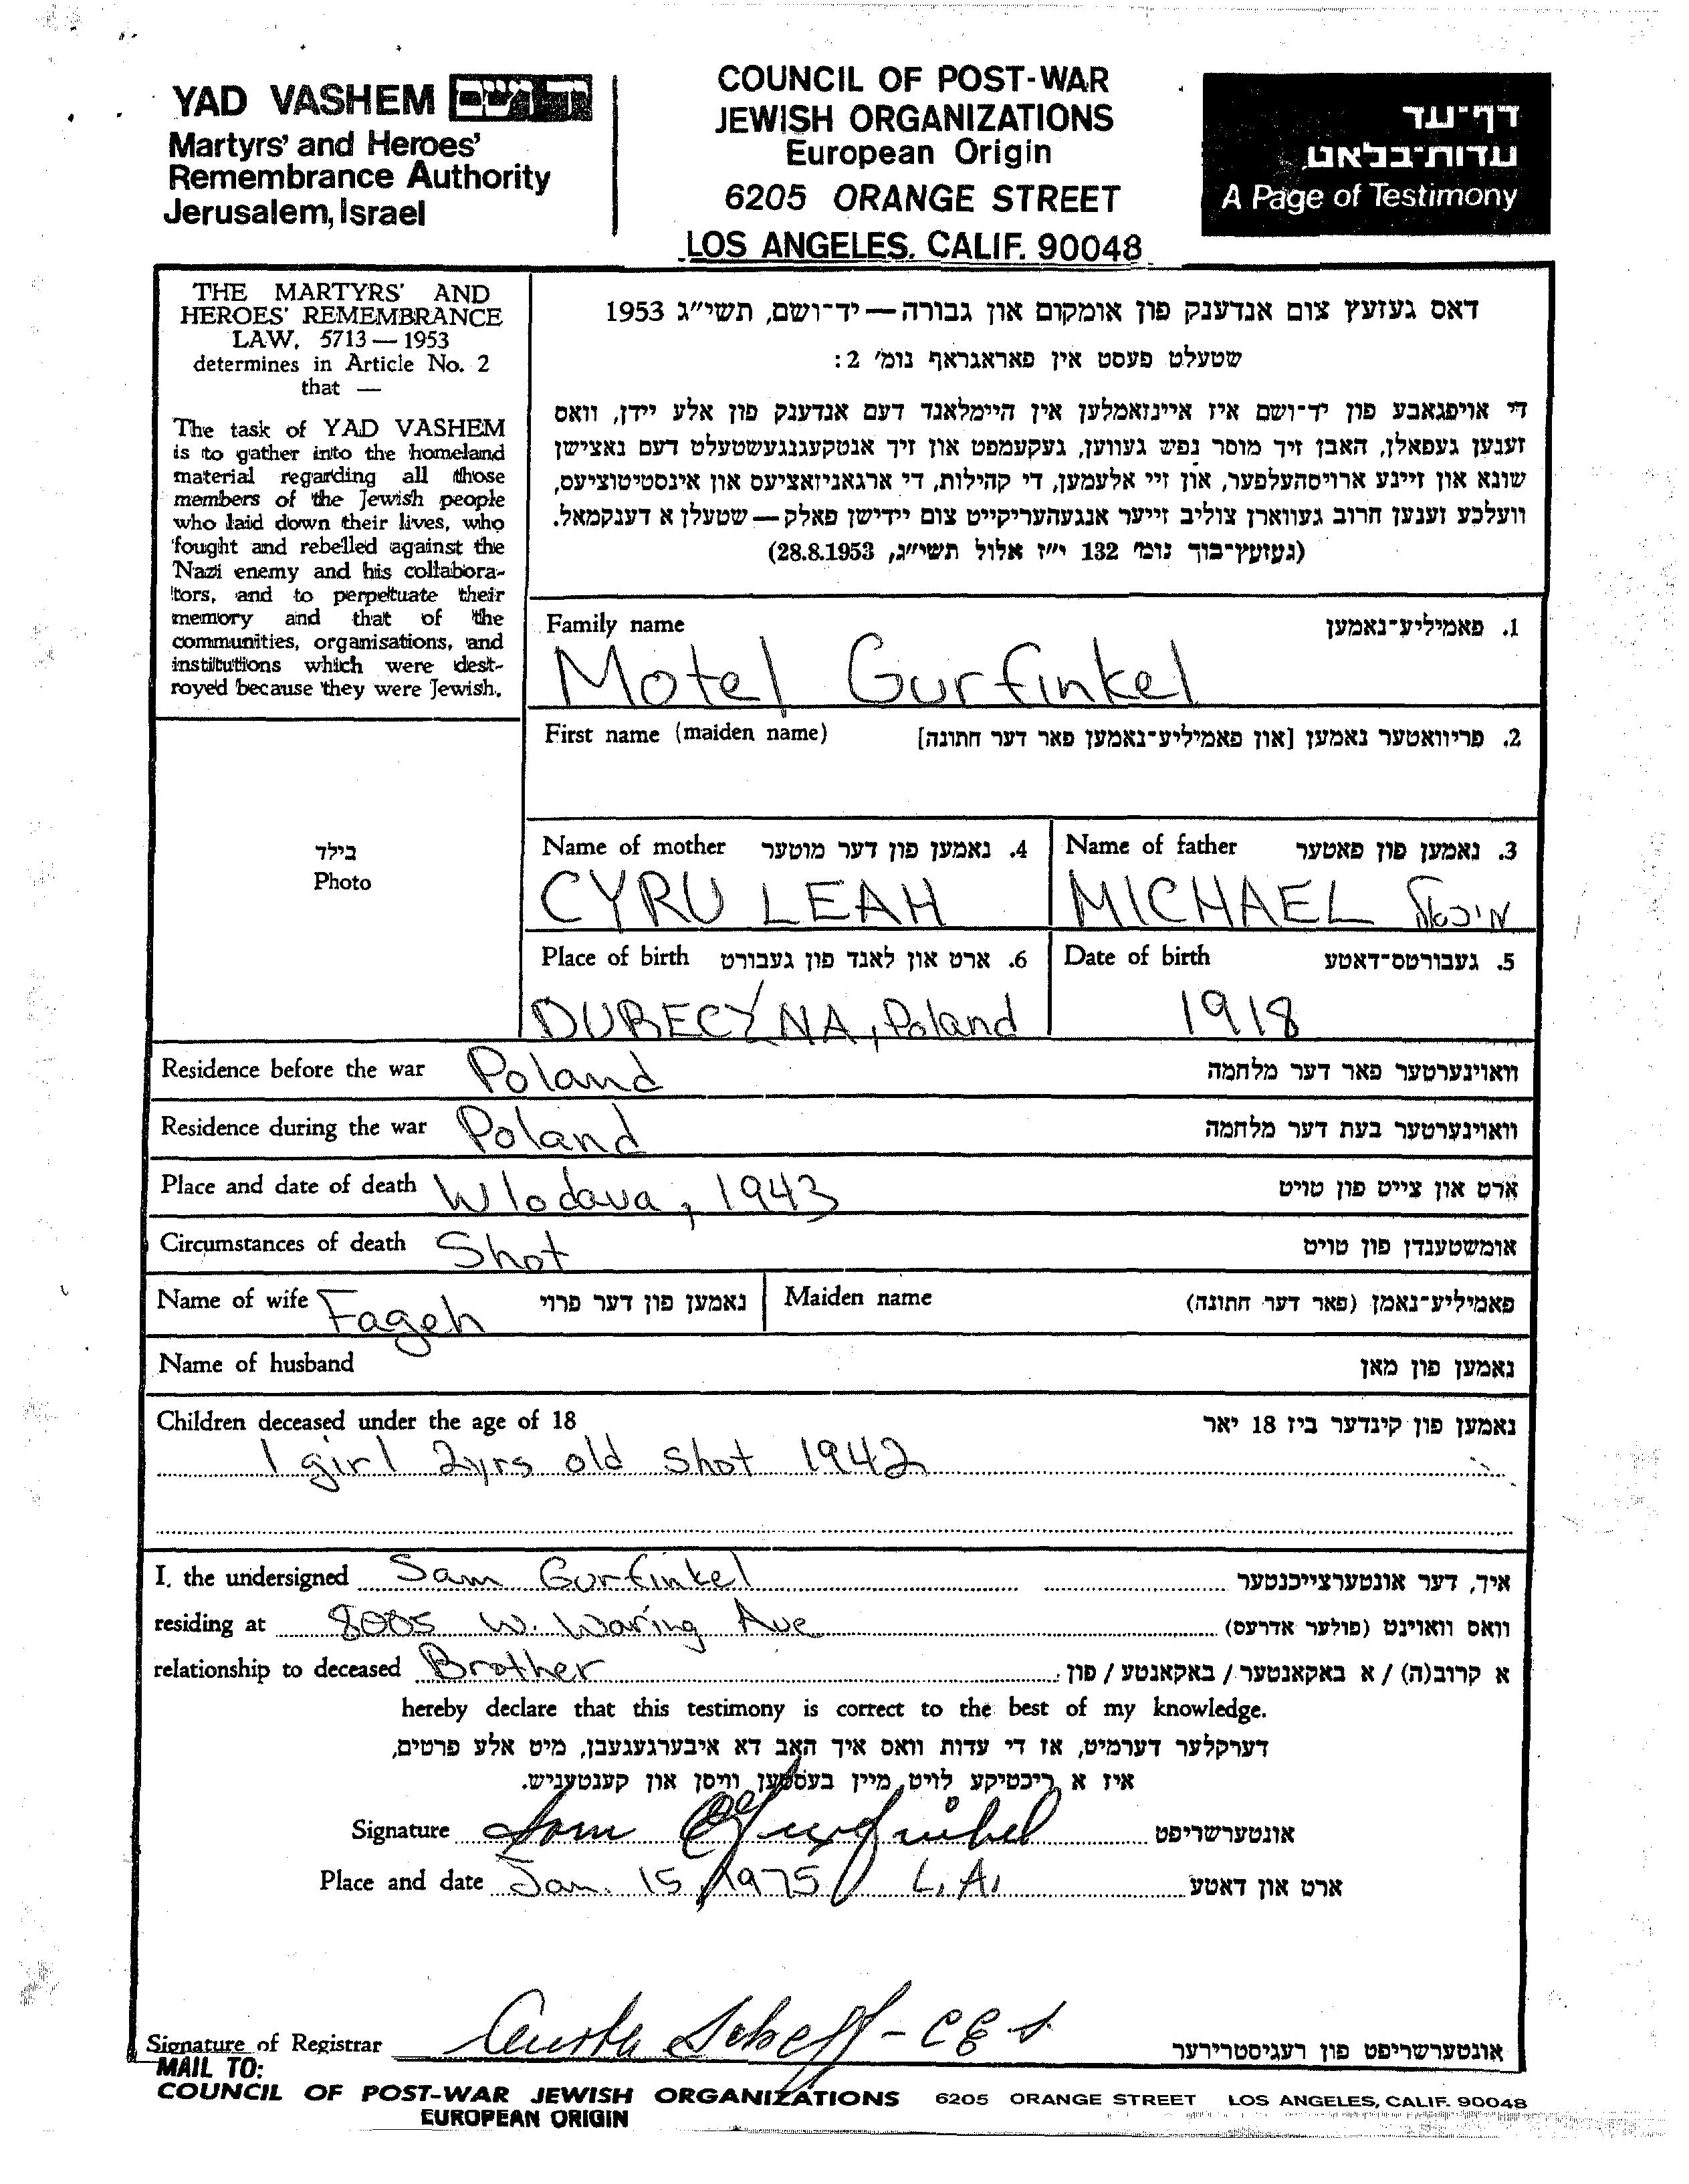 YAD VASHEM יד ושם
Martyrs' and Heroes'
Remembrance Authority
Jerusalem, Israel
COUNCIL OF POST-WAR
JEWISH ORGANIZATIONS
European Origin
6205 ORANGE STREET
LOS ANGELES. CALIF. 90048
דף־עד
עדות־בלאט
A Page of Testimony
THE MARTYRS' AND
HEROES' REMEMBRANCE
LAW, 5713 — 1953
determines in Article No. 2
that —
The task of YAD VASHEM
is to gather into the homeland
material regarding all those
members of the Jewish people
who laid down their lives, who
fought and rebelled against the
Nazi enemy and his collabora-
tors, and to perpetuate their
memory and that of the
communities, organisations, and
institutions which were dest-
royed because they were Jewish.
דאס געזעץ צום אנדענק פון אומקום און גבורה — יד־ושם, תשי״ג 1953
שטעלט פעסט אין פאראגראף נומ׳ 2:
די אויפגאבע פון יד־ושם איז איינזאמלען אין היימלאנד דעם אנדענק פון אלע יידן, וואס
זענען געפאלן, האבן זיך מוסר נפש געווען, געקעמפט און זיך אנטקעגנגעשטעלט דעם נאצישן
שונא און זיינע ארויסהעלפער, און זיי אלעמען, די קהילות, די ארגאניזאציעס און אינסטיטוציעס,
וועלכע זענען חרוב געווארן צוליב זייער אנגעהעריקייט צום יידישן פאלק — שטעלן א דענקמאל.
(געזעץ־בוך נומ׳ 132 י״ז אלול תשי״ג, 28.8.1953)
Family name 1. פאמיליע־נאמען
Motel Gurfinkel
First name (maiden name) 2. פריוואטער נאמען [און פאמיליע־נאמען פאר דער חתונה]
בילד
Photo
Name of mother 4. נאמען פון דער מוטער
CYRU LEAH
Name of father 3. נאמען פון פאטער
MICHAEL מיכאל
Place of birth 6. ארט און לאנד פון געבורט
DUBECZNA, Poland
Date of birth 5. געבורטס־דאטע
1918
Residence before the war Poland וואוינערטער פאר דער מלחמה
Residence during the war Poland וואוינערטער בעת דער מלחמה
Place and date of death Wlodava, 1943 ארט און צייט פון טויט
Circumstances of death Shot אומשטענדן פון טויט
Name of wife Fageh נאמען פון דער פרוי Maiden name פאמיליע־נאמן (פאר דער חתונה)
Name of husband נאמען פון מאן
Children deceased under the age of 18 נאמען פון קינדער ביז 18 יאר
1 girl 2yrs old shot 1942
I, the undersigned Sam Gurfinkel איך, דער אונטערצייכנטער
residing at 8005 W. Waring Ave וואס וואוינט (פולער אדרעס)
relationship to deceased Brother א קרוב(ה) / א באקאנטער / באקאנטע / פון
hereby declare that this testimony is correct to the best of my knowledge.
דערקלער דערמיט, אז די עדות וואס איך האב דא איבערגעגעבן, מיט אלע פרטים,
איז א ריכטיקע לויט מיין בעסטען וויסן און קענטעניש.
Signature Sam Gurfinkel אונטערשריפט
Place and date Jan. 15, 1975 L.A. ארט און דאטע
Signature of Registrar אונטערשריפט פון רעגיסטרירער
MAIL TO:
COUNCIL OF POST-WAR JEWISH ORGANIZATIONS 6205 ORANGE STREET LOS ANGELES, CALIF. 90048
EUROPEAN ORIGIN